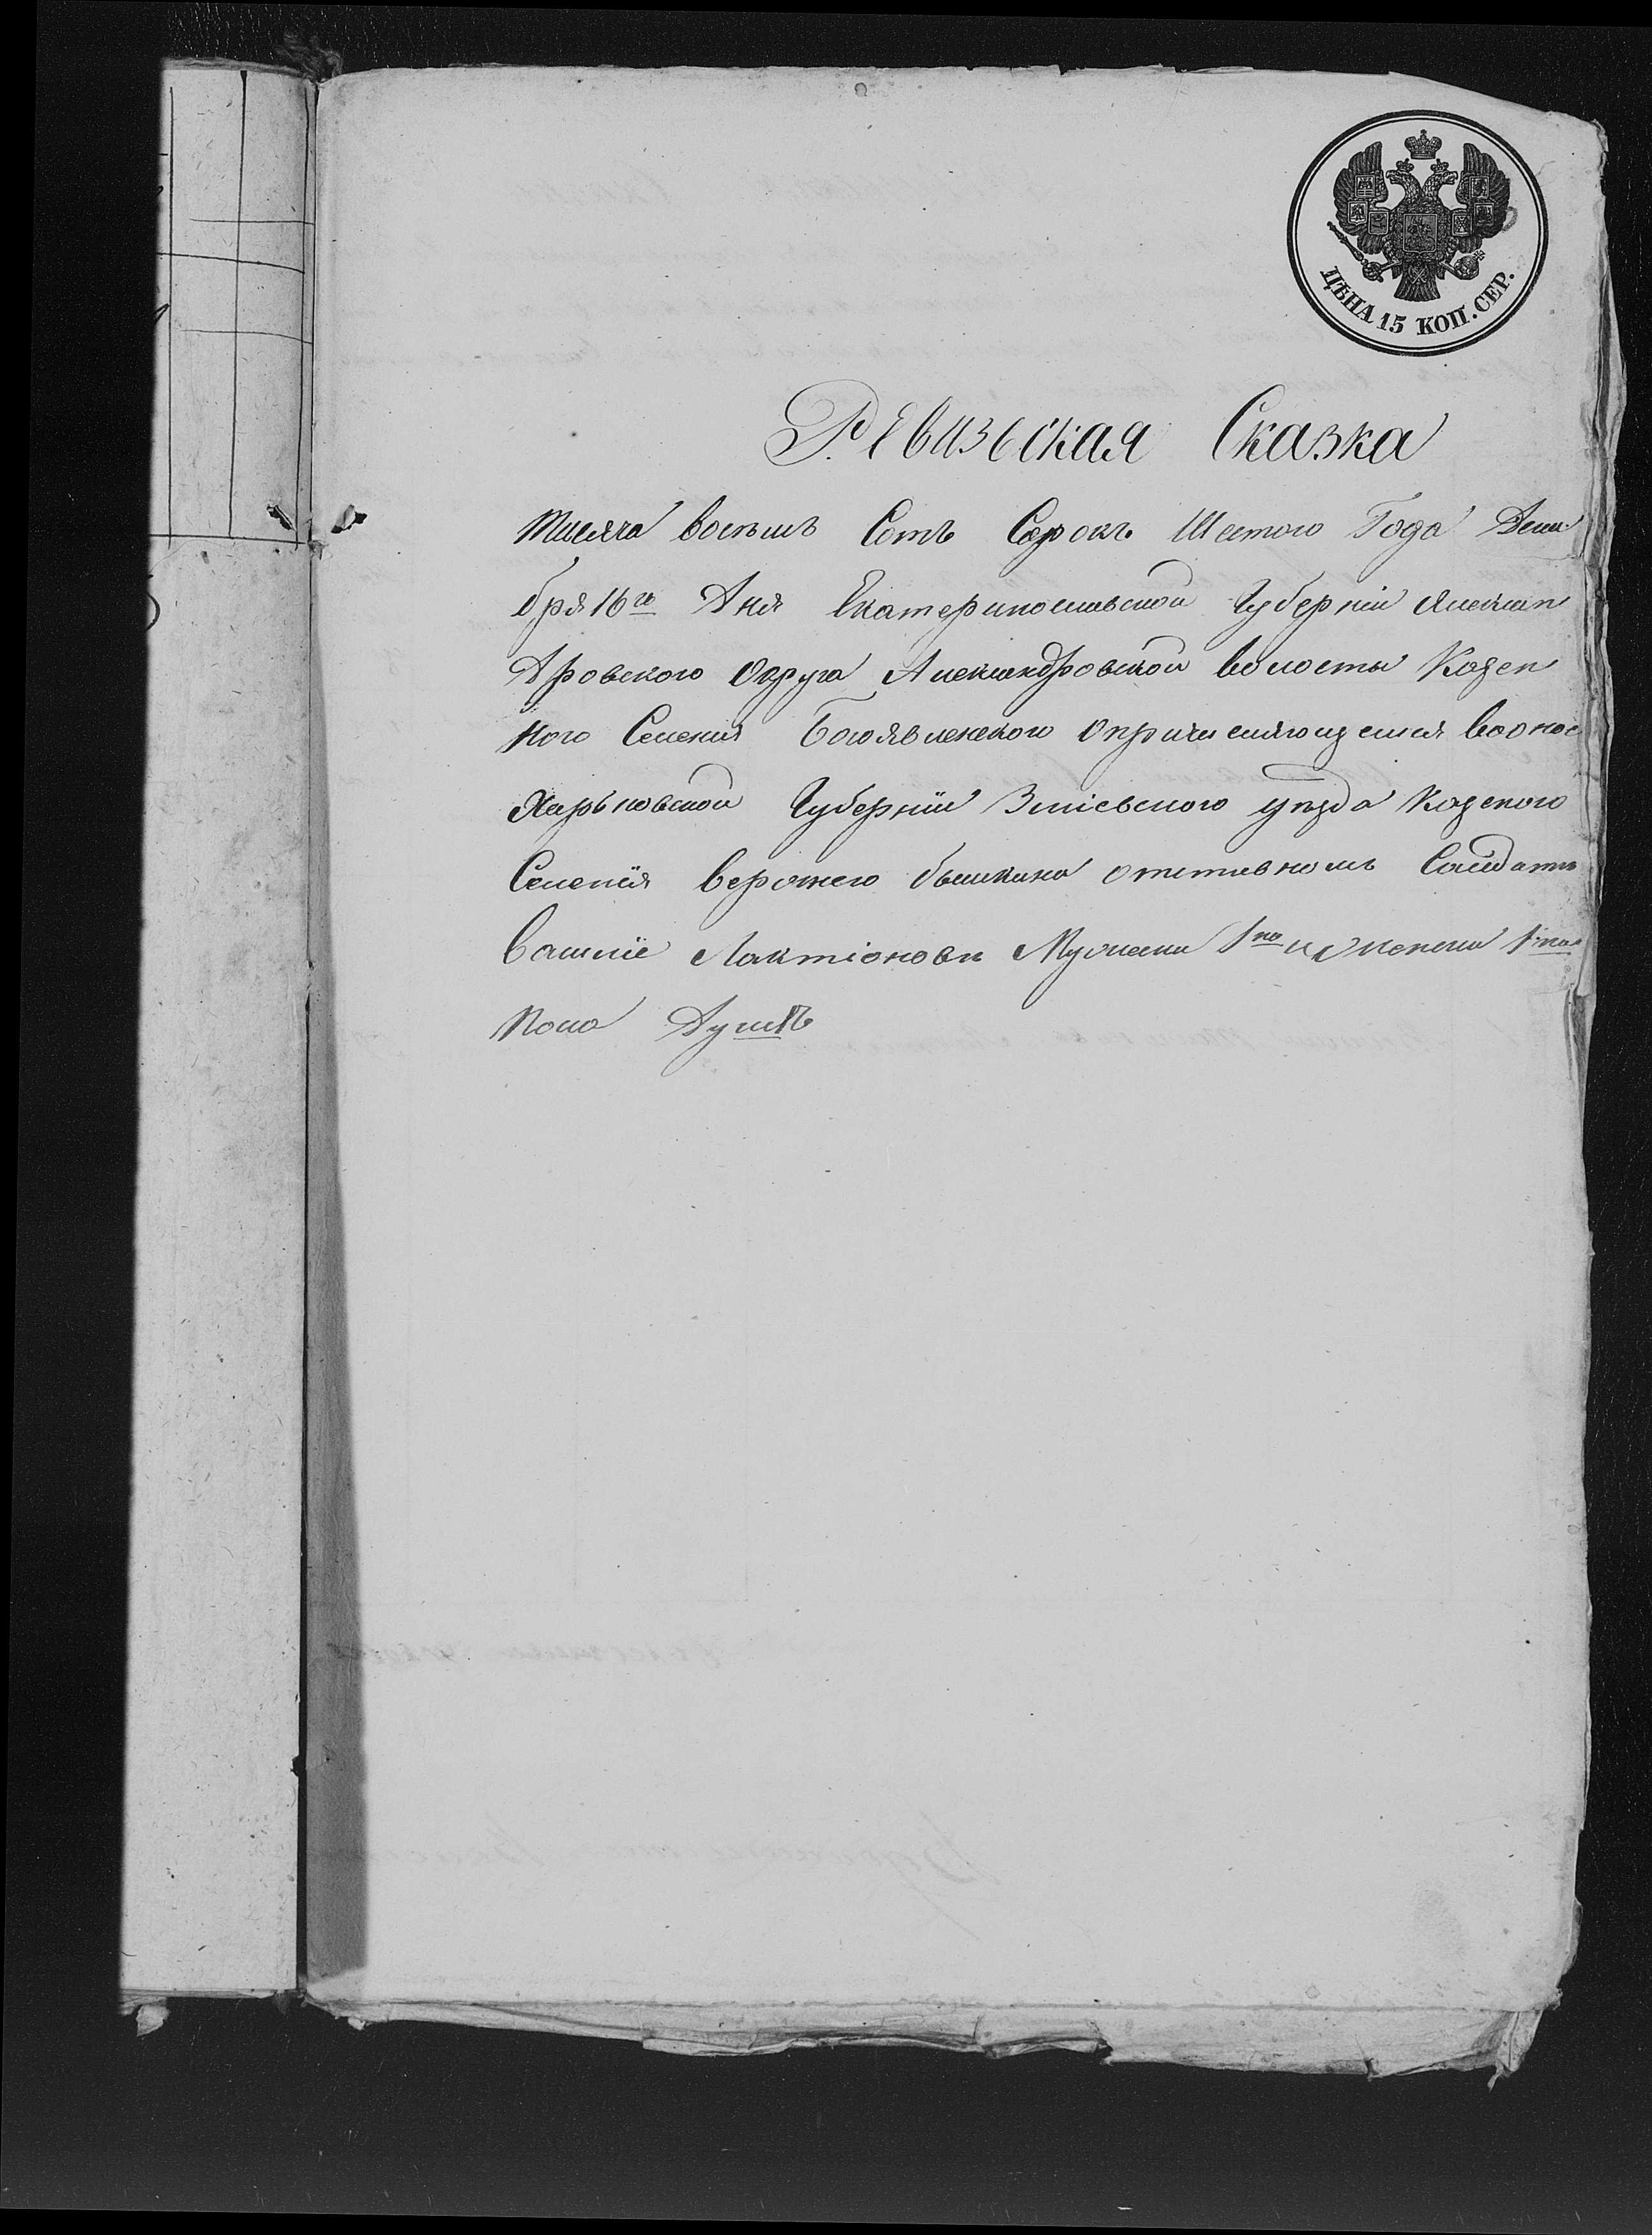 ЦѢНА 15 КОП. СЕР.
Ревизьская Сказка
тысяча восемъ Сотъ Сорокъ Шестого Года Дека
бря 16го Дня Екатеринославской Губерніи Алексан
Дровского Округа Александровской волосты Казен
ного Селения Богоявленского Опричисляющемся воное
Харьковской Губерніи Зміевского уѣзда Казеного
Селенія верхнего бышкина отставномъ Салдатѣ
василіе Лактіонове Мужеска 1го и женска 1го
Пола Душѣ